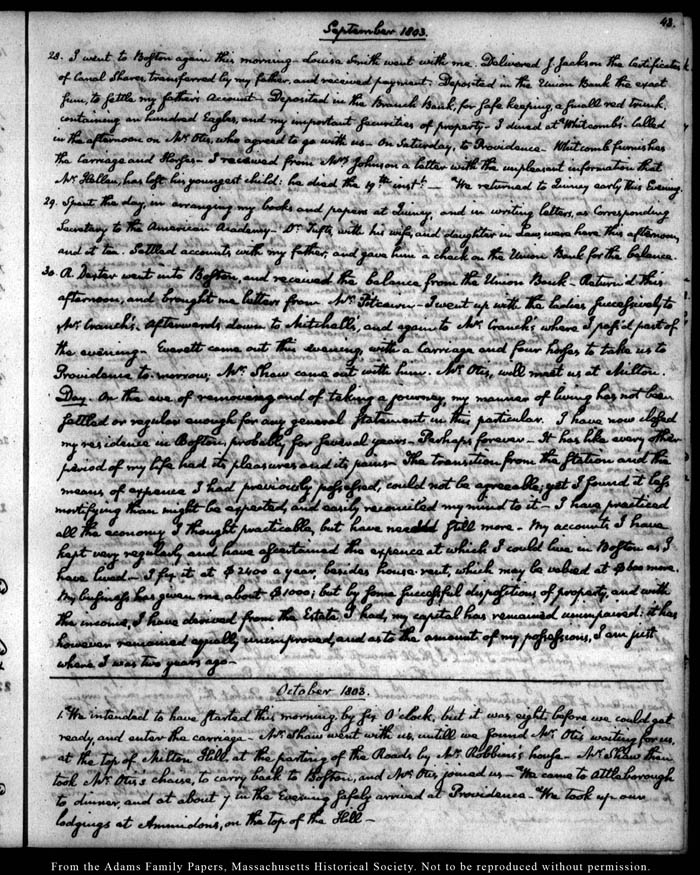 43.
September 1803.
28. I went to Boston again this morning - Louisa Smith went with me. Delivered J. Jackson the Certificates
of Canal Shares, transferred by my father, and received payment. Deposited in the Union Bank the exact
sum, to settle my father's Account - Deposited in the Branch Bank, for safe keeping, a small red trunk,
containing an hundred Eagles, and my important securities of property - I dined at Whitcomb's. Called
in the afternoon on Mr. Otis, who agreed to go with us - on Saturday, to Providence - Whitcomb furnishes
the Carriage and Horses - I received from Mrs. Johnson a letter with the unpleasant information that
Mr. Hellen, has lost his youngest child: he died the 19th. inst. - We returned to Quincy early this Evening.
29. Spent the day, in arranging my books and papers at Quincy, and in writing letters, as Corresponding
Secretary to the American Academy - Dr. Tufts, with his wife, and daughter in Law, were here this afternoon,
and at tea. Settled accounts with my father, and gave him a check on the Union Bank for the balance.
30. A. Dexter went into Boston, and received the balance from the Union Bank - Return'd this
afternoon, and brought me letters from Mr. Pitcairn - I went up with the ladies successively to
Mr. Cranch's. Afterwards down to Mitchell's, and again to Mr. Cranch's where I pass'd part of
the evening - Everett came out this evening, with a Carriage and four horses to take us to
Providence to-morrow; Mr. Shaw came out with him. Mr. Otis, will meet us at Milton.
Day. On the eve of removing and of taking a journey, my manner of living has not been
settled or regular enough for any general statement in this particular. I have now closed
my residence in Boston, probably for several years - Perhaps forever - It has like every other
period of my life had its pleasures and its pains - The transition from the station and the
means of expence I had previously possessed, could not be agreeable; yet I found it less
mortifying than might be expected, and easily reconciled my mind to it - I have practiced
all the economy I thought practicable, but have needed still more - My accounts I have
kept very regularly, and have ascertained the expence at which I could live in Boston as I
have lived - I fix it at $2400 a year, besides house rent, which may be valued at $600 more.
My business has given me about $1000; but by some successful dispositions of property, and with
the income, I have derived from the Estate I had, my capital has remained unimpaired: it has
however remained equally unimproved, and as to the amount of my possessions, I am just
where I was two years ago -
October 1803.
1. We intended to have started this morning by six O'clock, but it was eight, before we could get
ready, and enter the carriage - Mr. Shaw went with us, untill we found Mr. Otis waiting for us,
at the top of Milton Hill, at the parting of the Roads by Mr. Robbins's house - Mr. Shaw then
took Mr. Otis's chaise, to carry back to Boston, and Mr. Otis joined us - We came to Attleborough
to dinner, and at about 7 in the Evening safely arrived at Providence. We took up our
lodgings at Ammidon's, on the top of the Hill -
From the Adams Family Papers, Massachusetts Historical Society. Not to be reproduced without permission.